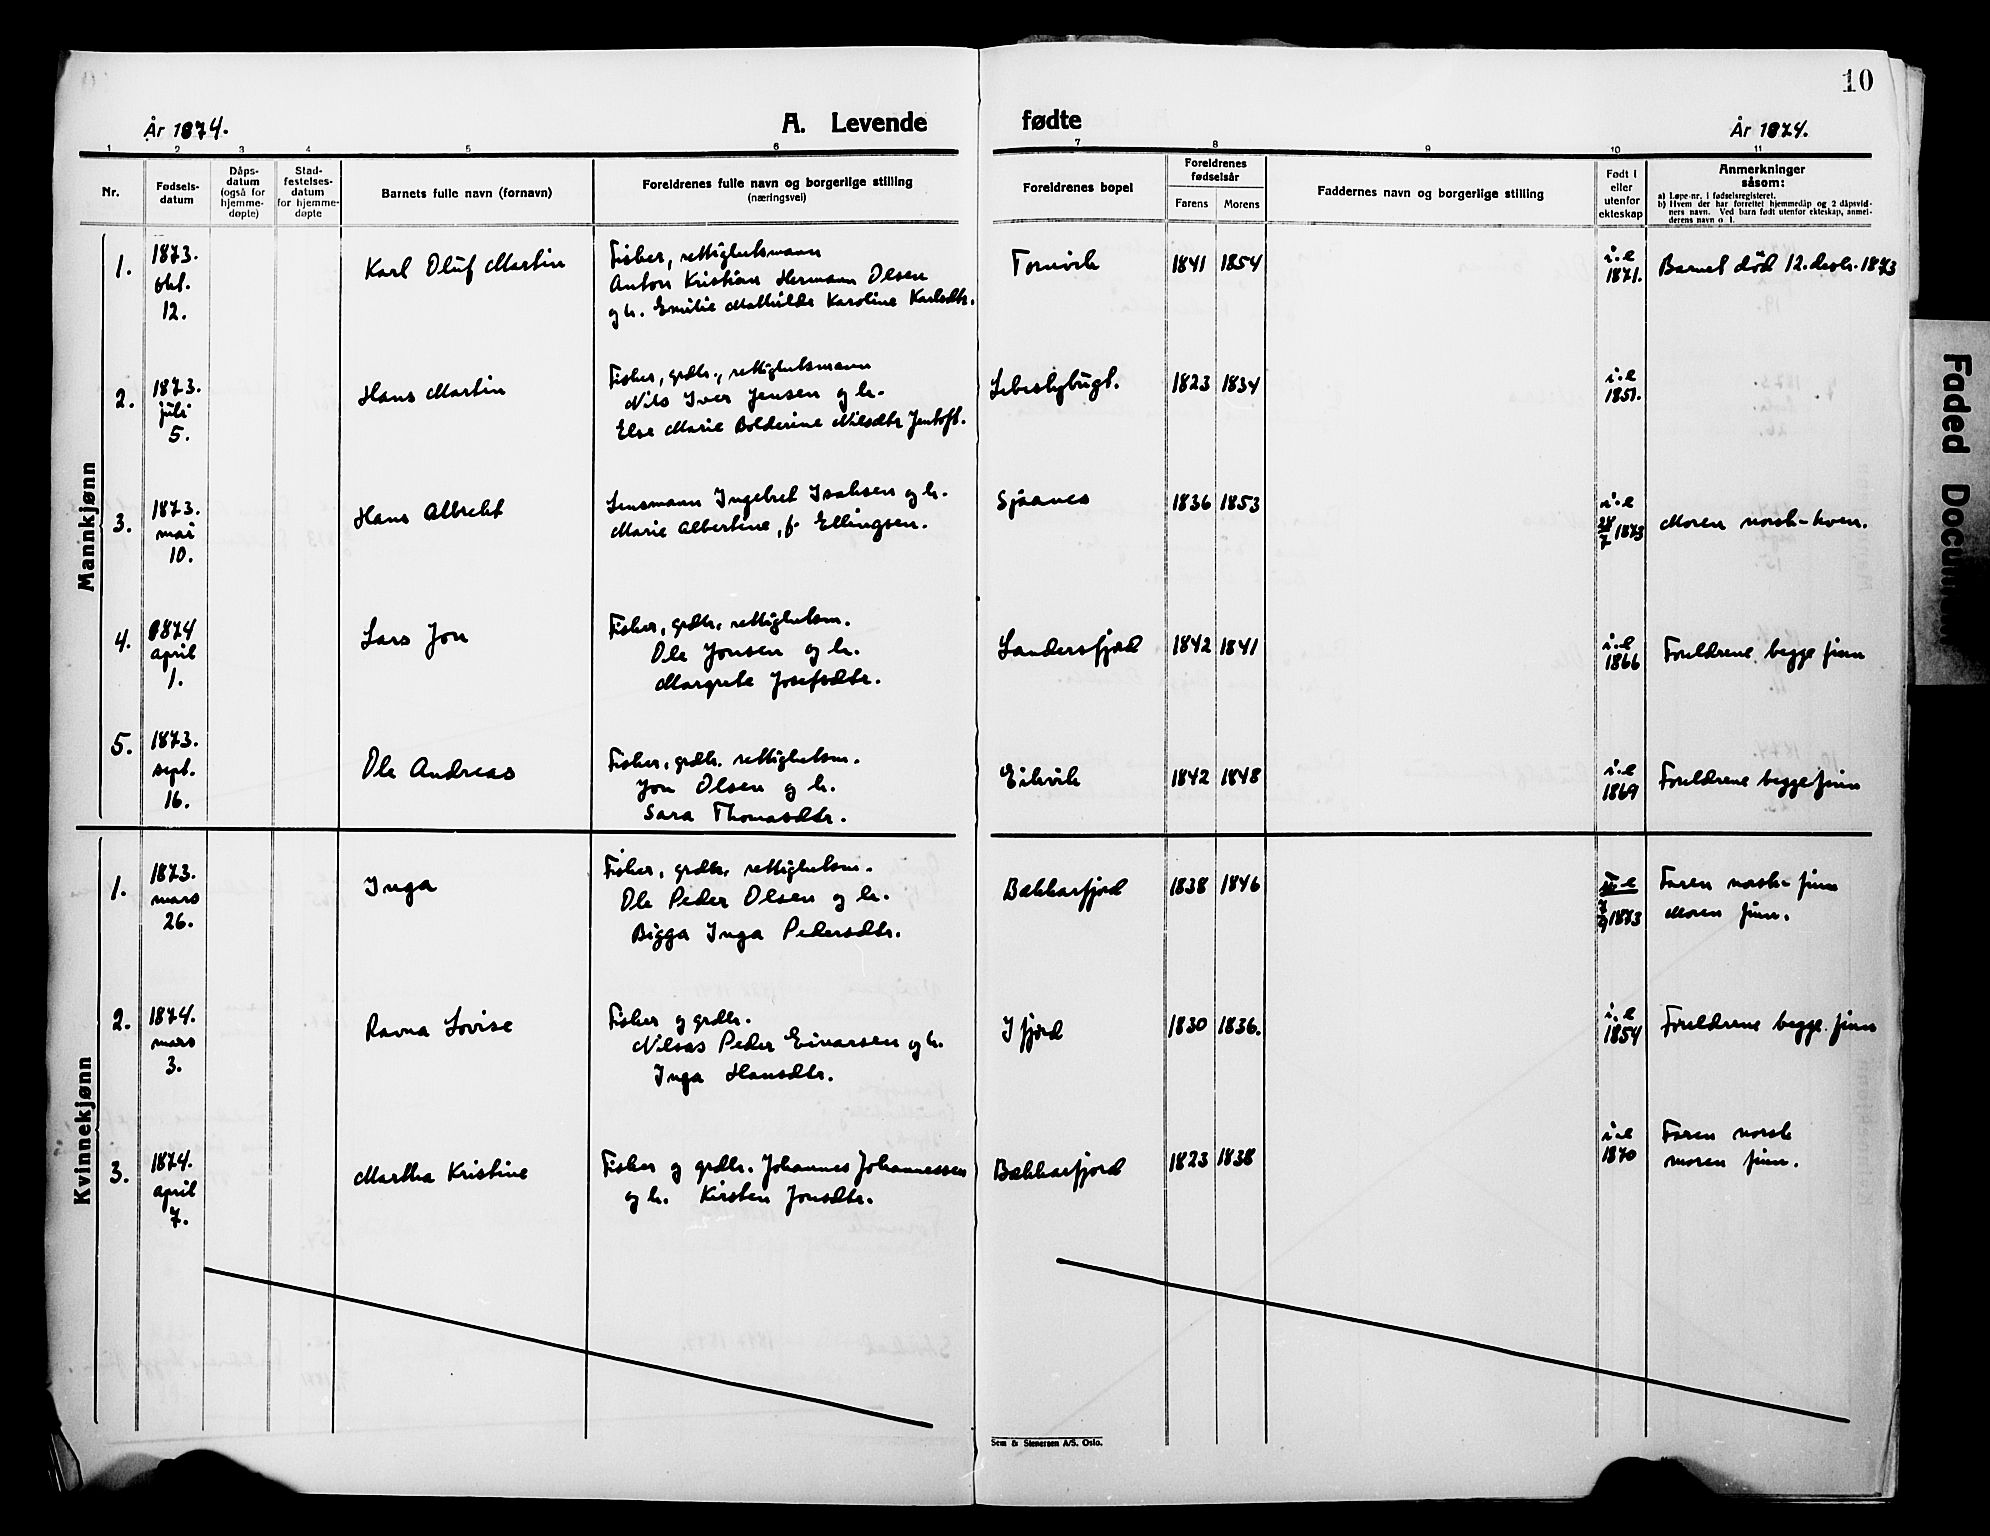 10
År 1874.
A. Levende fødte
År 1874.
1 2 3 4 5 6 7 8 9 10 11
Nr.
Fødsels-
datum
Dåps-
datum
(også for
hjemme-
døpte)
Stad-
festelses-
datum
for hjemme-
døpte
Barnets fulle navn (fornavn)
Foreldrenes fulle navn og borgerlige stilling
(næringsvei)
Foreldrenes bopel
Foreldrenes
fødselsår
Farens Morens
Faddernes navn og borgerlige stilling
Født i
eller
utenfor
ekteskap
Anmerkninger
såsom:
a) Løpe-nr. i fødselsregisteret.
b) Hvem der har forrettet hjemmedåp og 2 dåpsvid-
ners navn. Ved barn født utenfor ekteskap, anmel-
derens navn o. l.
Mannkjønn
1.
1873.
okt.
12.
Karl Oluf Martin
Fisker, rettighetsmann
Anton Kristian Hermann Olsen
og h. Emilie Mathilde Karoline Karlsdtr.
Tornvik
1841 1854
i.e
1871.
Barnet død 12. desbr. 1873
2.
1873.
juli
5.
Hans Martin
Fisker, grdbr., rettighetsmann
Nils Iver Jensen og h.
Else Marie Bolderine Nilsdtr Jentoft.
Lebesbybugt.
1823 1834
i.e
1851.
3.
1873.
mai
10.
Hans Albrekt
Lensmann Ingebret Isaksen og h.
Marie Albertine, f. Ellingsen.
Sjaanes
1836 1853
u.e
24/7 1873
Moren norsk-kven.
4.
1874
april
1.
Lars Jon
Fisker, grdbr. rettighetsm.
Ole Jonsen og h.
Margrete Josefsdtr.
Landersfjord
1842 1841
i.e
1866
Foreldrene begge finn
5.
1873.
sept.
16.
Ole Andreas
Fisker, grdbr. rettighetsm.
Jon Olsen og h.
Sara Thomasdtr.
Eikvik
1842 1848
i.e
1869
Foreldrene begge finn
Kvinnekjønn
1.
1873.
mars
26.
Inga
Fisker, grdbr, rettighetsm.
Ole Peder Olsen og h.
Bigga Inga Pedersdtr.
Bekkarfjord
1838 1846
u.e
7/9 1873
Faren norsk-finn
Moren finn.
2.
1874.
mars
3.
Ravna Lovise
Fisker og grdbr.
Nilsas Peder Eivarsen og h.
Inga Hansdtr.
Ifjord
1830 1836.
i.e
1854
Foreldrene begge finn
3.
1874.
april
7.
Martha Kristine
Fisker og grdbr. Johannes Johannessen
og h. Kirsten Jonsdtr.
Bekkarfjord
1823 1838
i.e
1870
Faren norsk
moren finn.
Sem & Stenersen A/S. Oslo.
Faded Document